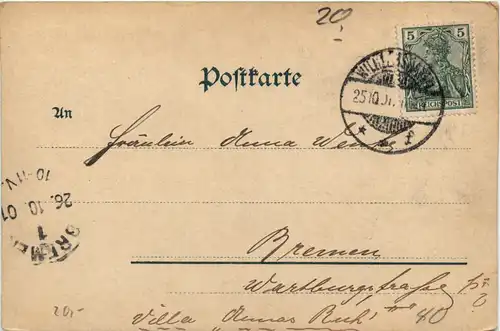 20,
5 5
WILHELMSHAVEN
25.10.01
REICHSPOST
* f
Postkarte
An
Fräulein Anna
BREMEN
1
26.10.01
10-11V.
Bremen
Wartburgstraße
Villa "Annas Ruh"
20,-